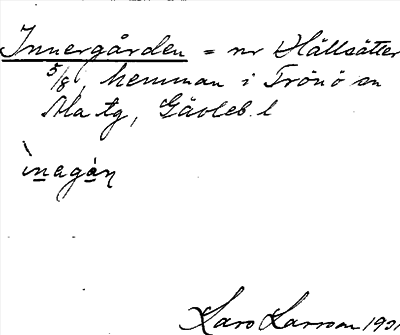 Innergården = nr Hällsätter
5/8, hemman i Trönö sn
Ala tg, Gävleb. l
ìnagán
Lars Larsson 19